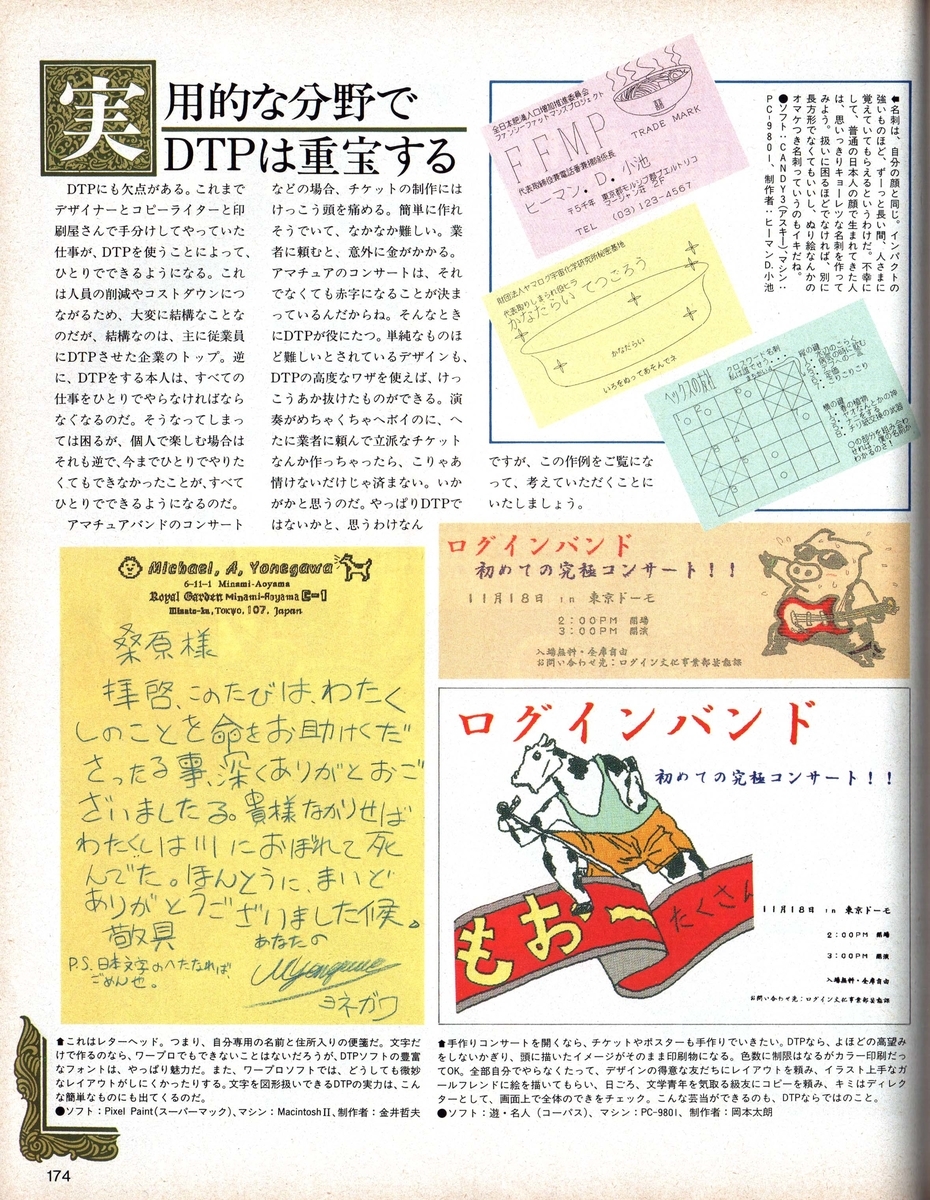 実用的な分野で
DTPは重宝する
DTPにも欠点がある。これまで
デザイナーとコピーライターと印
刷屋さんで手分けしてやっていた
仕事が、DTPを使うことによって、
ひとりでできるようになる。これ
は人員の削減やコストダウンにつ
ながるため、大変に結構なことな
のだが、結構なのは、主に従業員
にDTPさせた企業のトップ。逆
に、DTPをする本人は、すべての
仕事をひとりでやらなければなら
なくなるのだ。そうなってしまっ
ては困るが、個人で楽しむ場合は
それも逆で、今までひとりでやりた
くてもできなかったことが、すべて
ひとりでできるようになるのだ。
アマチュアバンドのコンサート
などの場合、チケットの制作には
けっこう頭を痛める。簡単に作れ
そうでいて、なかなか難しい。業
者に頼んと、意外に金がかかる。
アマチュアのコンサートは、それ
でなくても赤字になることが決ま
っているんだからね。そんなとき
にDTPが役にたつ。単純なものほ
ど難しいとされているデザインも、
DTPの高度なワザを使えば、けっ
こうあか抜けたものができる。演
奏がめちゃくちゃヘボイのに、へ
たに業者に頼んで立派なチケット
なんか作っちゃったら、こりゃあ
情けないだけじゃ済まない。いか
がかと思うのだ。やっぱりDTPで
はないかと、思うわけなん
ですが、この作例をご覧にな
って、考えていただくことに
いたしましょう。
全日本肥満人口増加推進委員会
ファンシーファットマンズプロジェクト
FFMP
TRADE MARK
代表取締役兼電話番兼掃除係長
ヒーマン・D・小池
〒5千年 東京都モルンブ郡プエルトリコ
マージャル 2F
TEL (03) 123-4567
財団法人ヤマログ宇宙化学研究所秘密基地
代表取りしまられ役ヒラ
かなたらい てつごろう
かなだらい
いろをぬってあそんでネ
ヘックスの森社
クロスワード名刺
私は誰でせう・・
縦の鍵
横の鍵
○の部分を組み合わ
せれば、僕の名前が
わかるのさ!
⬆名刺は、自分の顔と同じ。インパクトの
強いものほど、ずーっと長い間、人さまに
覚えていてもらえるというわけだ。不幸に
して、普通の日本人の顔で生まれてきた人
は、思いっきりキョーレツな名刺を作って
みよう。扱いに困るほどでなければ、別に
長方形でなくてもいいし、ぬり絵なんかの
オマケつき名刺っていうのもイキだね。
●ソフト:CANDY3(アスキー)、マシン:
PC-9801、制作者:ヒーマンD.小池
Michael, A, Yonegawa
6-11-1 Minami-Aoyama
Royal Garden Minami-Aoyama C-1
Minato-ku, TOKYO, 107, Japan
桑原様
拝啓、このたびは、わたく
しのことを命をお助けくだ
さったる事、深くありがとおご
ざいましたる。貴様なかりせば
わたくしは川におぼれて死
んでた。ほんとうに、まいど
ありがとうございました候。
敬具
あなたの
ヨネガワ
P.S. 日本文字のへたなれば、
ごめん也。
ログインバンド
初めての究極コンサート!!
11月18日 in 東京ドーモ
2:00PM 開場
3:00PM 開演
入場無料・全席自由
お問い合わせ先:ログイン文化事業部芸能課
ログインバンド
初めての究極コンサート!!
もおー
たくさん
11月18日 in 東京ドーモ
2:00PM 開場
3:00PM 開演
入場無料・全席自由
お問い合わせ先:ログイン文化事業部芸能課
⬆これはレターヘッド。つまり、自分専用の名前と住所入りの便箋だ。文字だ
けで作るのなら、ワープロでもできないことはないだろうが、DTPソフトの豊富
なフォントは、やっぱり魅力だ。また、ワープロソフトでは、どうしても微妙
なレイアウトがしにくかったりする。文字を図形扱いできるDTPの実力は、こん
な簡単なものにも出てくるのだ。
●ソフト:Pixel Paint(スーパーマック)、マシン:MacintoshⅡ、制作者:金井哲夫
⬆手作りコンサートを開くなら、チケットやポスターも手作りでいきたい。DTPなら、よほどの高望み
をしないかぎり、頭に描いたイメージがそのまま印刷物になる。色数に制限はなるがカラー印刷だっ
てOK。全部自分でやらなくたって、デザインの得意な友だちにレイアウトを頼み、イラスト上手なガ
ールフレンドに絵を描いてもらい、日ごろ、文学青年を気取る級友にコピーを頼み、キミはディレク
ターとして、画面上で全体のできをチェック。こんな芸当ができるのも、DTPならではのこと。
●ソフト:遊・名人(コーパス)、マシン:PC-9801、制作者:岡本太朗
174